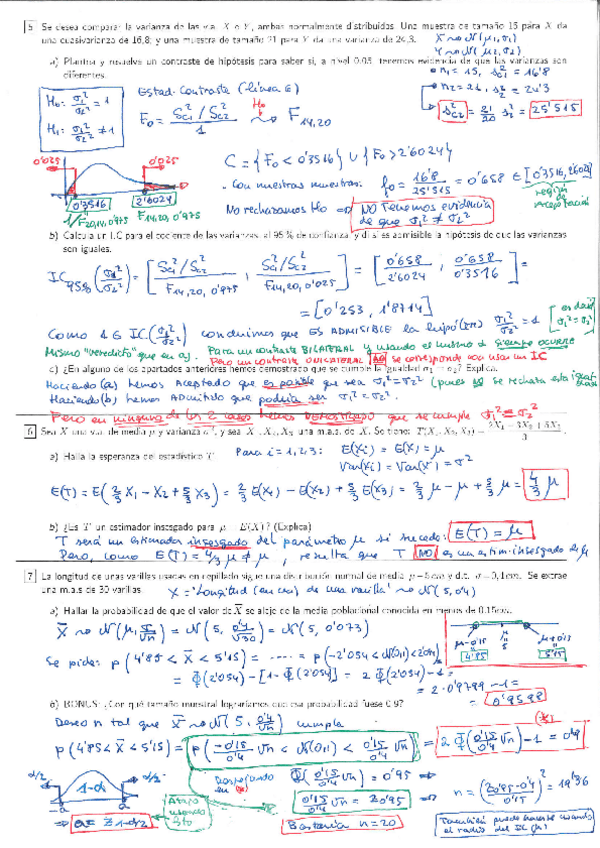 5 Se desea comparar la varianza de las v.a. X e Y, ambas normalmente distribuidas. Una muestra de tamaño 15 para X da
una cuasivarianza de 16,8; y una muestra de tamaño 21 para Y da una varianza de 24,3.
X ~ N(μ1,σ1)
Y ~ N(μ2,σ2)
a) Plantea y resuelve un contraste de hipótesis para saber si, a nivel 0.05, tenemos evidencia de que las varianzas son
diferentes.
n1 = 15, sc1² = 16'8
n2 = 21, s2² = 24'3
sc2² = 21/20 s2² = 25'515
H0: σ1²/σ2² = 1
H1: σ1²/σ2² ≠ 1
Estad. Contraste (línea 6)
F0 = (Sc1²/Sc2²)/1 ~ H0 F14,20
0'025 0'025
0'3516 2'6024
1/F20,14,0'975 F14,20,0'975
C = {F0 < 0'3516} ∪ {F0 > 2'6024}
. Con nuestras muestras: f0 = 16'8/25'515 = 0'658 ∈ [0'3516, 2'6024]
región de aceptación
No rechazamos H0 ⇒ NO Tenemos evidencia
de que σ1² ≠ σ2²
b) Calcula un I.C para el cociente de las varianzas, al 95 % de confianza, y di si es admisible la hipótesis de que las varianzas
son iguales.
IC95%(σ1²/σ2²) = [(Sc1²/Sc2²)/F14,20,0'975 , (Sc1²/Sc2²)/F14,20,0'025] = [0'658/2'6024 , 0'658/0'3516] =
= [0'253, 1'8714]
Como 1 ∈ IC(σ1²/σ2²) concluimos que ES ADMISIBLE la hipótesis σ1²/σ2² = 1 [es decir σ1² = σ2²]
Mismo "veredicto" que en a). Para un contraste BILATERAL y usando el mismo α siempre ocurre
Pero un contraste UNILATERAL NO se corresponde con usar un IC
c) ¿En alguno de los apartados anteriores hemos demostrado que se cumple la igualdad σ1 = σ2? Explica.
Haciendo (a) hemos Aceptado que es posible que sea σ1² = σ2² (pues no se rechaza esta igualdad)
Haciendo (b) hemos Admitido que podría ser σ1² = σ2².
Pero en ninguno de los 2 casos hemos DEMOSTRADO que se cumple σ1² = σ2²
6 Sea X una var. de media μ y varianza σ², y sea X1, X2, X3 una m.a.s. de X. Se tiene: T(X1, X2, X3) = (2X1 − 3X2 + 5X3)/3.
a) Halla la esperanza del estadístico T
Para i = 1,2,3: E(Xi) = E(X) = μ
Var(Xi) = Var(X) = σ²
E(T) = E(2/3 X1 - X2 + 5/3 X3) = 2/3 E(X1) - E(X2) + 5/3 E(X3) = 2/3 μ - μ + 5/3 μ = 4/3 μ
b) ¿Es T un estimador insesgado para μ = E(X)? (Explica)
T será un estimador insesgado del parámetro μ si sucede: E(T) = μ
Pero, como E(T) = 4/3 μ ≠ μ, resulta que T NO es un estim. insesgado de μ
7 La longitud de unas varillas usadas en cepillado sigue una distribución normal de media μ = 5cm y d.t. σ = 0,4cm. Se extrae
una m.a.s de 30 varillas.
X = "Longitud (en cm) de una varilla" ~ N(5, 0'4)
a) Hallar la probabilidad de que el valor de X̄ se aleje de la media poblacional conocida en menos de 0.15cm.
X̄ ~ N(μ, σ/√n) = N(5, 0'4/√30) = N(5, 0'073)
μ-0'15 μ μ+0'15
4'85 5 5'15
Se pide: p(4'85 < X̄ < 5'15) = ..... = p(-2'054 < N(0,1) < 2'054)
= Φ(2'054) - [1 - Φ(2'054)] = 2 Φ(2'054) - 1 =
= 2 · 0'9799 - 1 =
= 0'9598
b) BONUS: ¿Con qué tamaño muestral lograríamos que esa probabilidad fuese 0.9?
Deseo n tal que X̄ ~ N(5, 0'4/√n) cumpla
(*)
p(4'85 < X̄ < 5'15) = p(-0'15/0'4 √n < N(0,1) < 0'15/0'4 √n) = 2 Φ(0'15/0'4 √n) - 1 = 0'9
α/2 1-α α/2
-a a
⇒ a = z1-α/2
Atajo usando esto
Despejando en (*)
Φ(0'15/0'4 √n) = 0'95 ⇒
0'15/0'4 √n = 2095
⇒ n = (2095·0'4/0'15)² = 19'36
Bastaría n = 20
También puede hacerse usando
el radio del IC (μ)